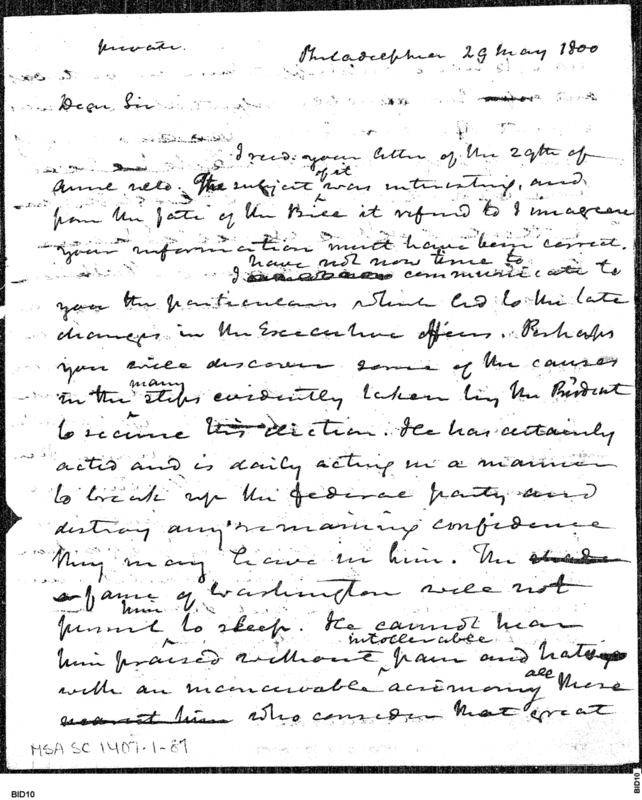 private.
Philadelphia 29 May 1800
Dear Sir
I recd. your letter of the 29th of
of it
The subject was interesting, and
from the fate of the Bill it referred to I imagine
your information must have been correct.
have not now time to
I communicate to
you the particulars which led to the late
changes in the Executive offices. Perhaps
you will discover some of the causes
many
in the steps evidently taken by the President
to secure his election. He has certainly
acted and is daily acting in a manner
to break up the federal party and
destroy any remaining confidence
they may have in him. The shade
fame of Washington will not
him
permit to sleep. He cannot hear
intollerable
him praised without pain and hates
all
with an inconceivable acrimony those
nearest him who consider that great
MSA SC 1407-1-87
BID10
BID10